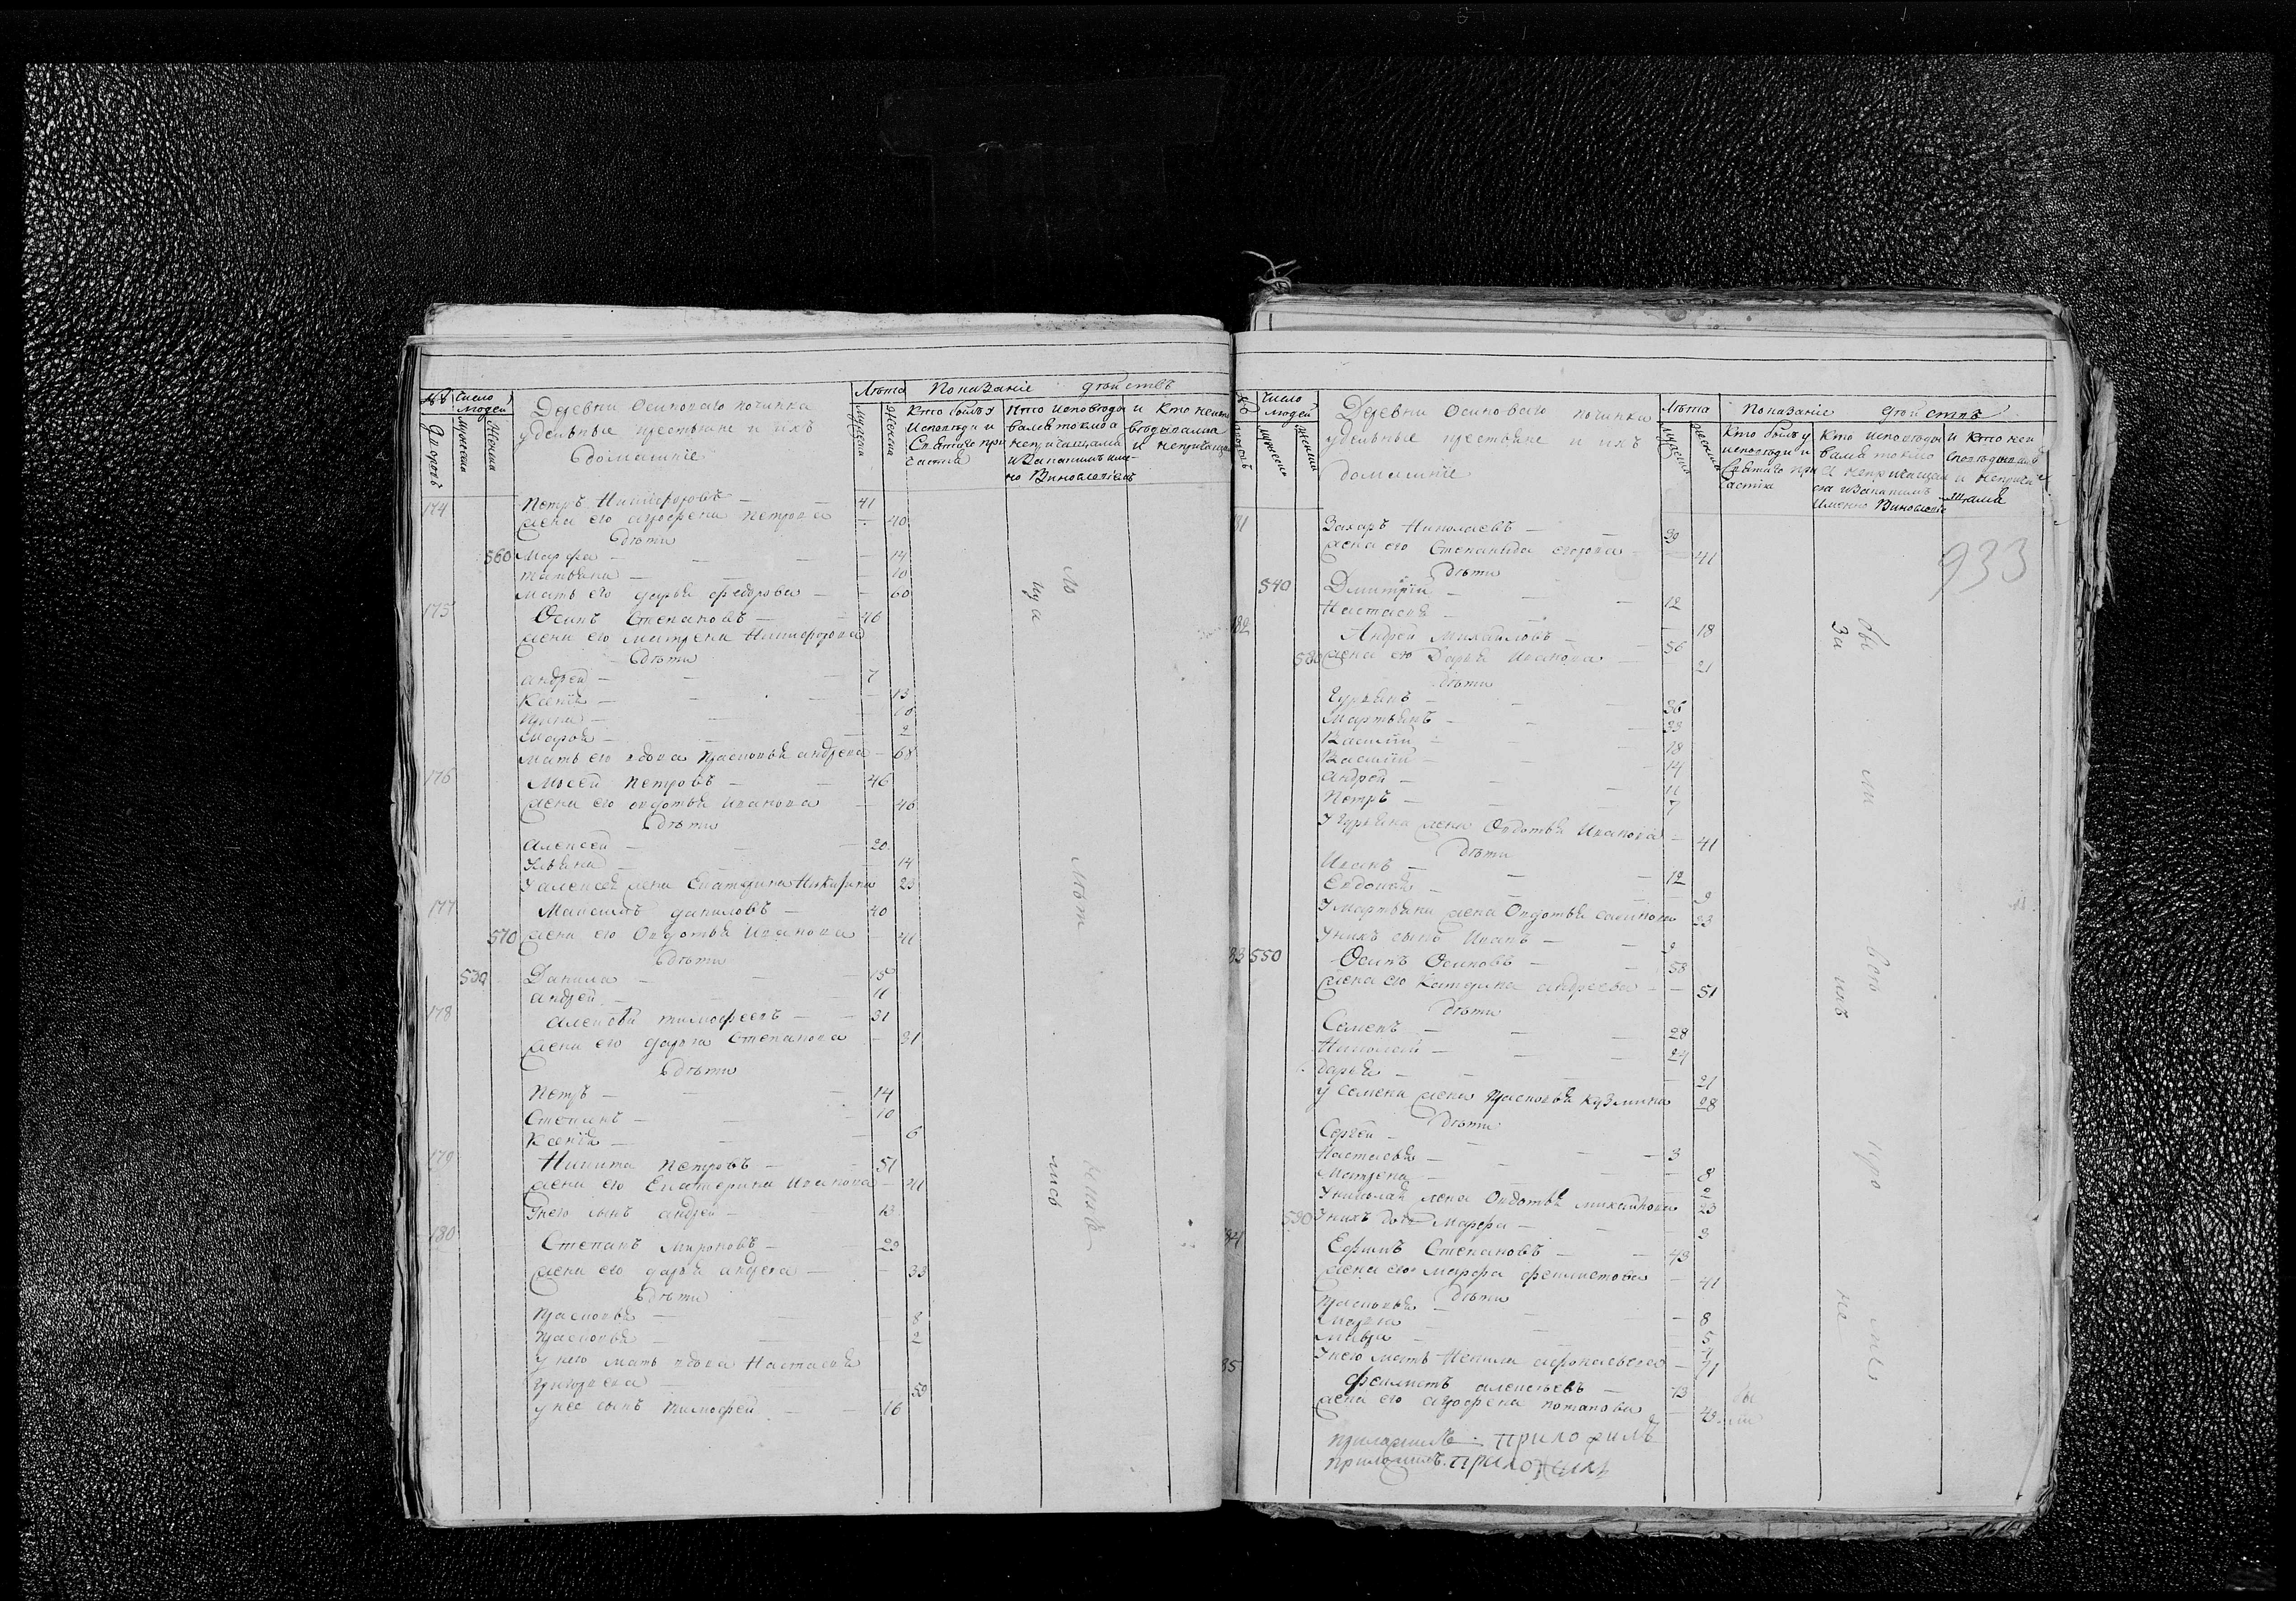 №№ Число людей
Дворовъ
мужеска
Женска
Деревни Осиноваго починка
удѣльные крестьяне и ихъ
домашніе
Лѣта
мужеска
Женска
Показаніе действъ
Кто былъ у исповѣди и Святаго при частія
Кто исповѣды вался токмо а непричащался и Закакимъ име но Винословіемъ
и Кто неиспо вѣдывался и непричащал
174 Петръ Никифоровъ — 41
жена его Афросенья Петрова — 40
дѣти
560 Марфа — 14
Татьяна — 10
мать его дарья федорова — 60
175 Осипъ Степановъ — 46
жена его матрена Никифорова
дѣти
андрей — 7
Ксенія — 13
— 10
Марья — 2
мать его вдова Прасковья андреева — 68
176 Мосей Петровъ — 46
жена его овдотья Иванова — 46
дѣти
Алексей — 20
Ульяна — 14
У алексея жена Екатерина Никифорова 23
177 Максимъ даниловъ — 40
570 жена его Овдотья Иванова — 41
дѣти
530 Данила — 15
андрей — 11
178 алексей тимофеевъ — 31
жена его дарья Степанова — 31
дѣти
Петръ — 14
Степанъ — 10
Ксенія — 6
179 Никита Петровъ — 51
жена его Екатерина Иванова — 41
У него сынъ андрей — 13
180 Степанъ Мироновъ — 29
жена его дарья андреева — 33
дѣти
Прасковья — 8
Прасковья — 2
у него мать вдова Настасья
Григорьева — 50
у нее сынъ тимофей — 16
Число людей
мужеска
женска
Деревни Осиноваго починка
удѣльные крестьяне и ихъ
домашніе
Лѣта
мужеска
женска
Показаніе действъ
Кто былъ у исповѣди и Святаго при частія
Кто исповѣды вался токмо а непричащал ся и Закакимъ Именно Винословіе
и Кто неи споведывался и неприча щался
933
181 Захаръ Николаевъ — 39
жена его Степанида егорова — 41
дѣти
540 Дмитрій — 12
Настасья — 18
182 Андрей Михайловъ — 56
580 жена его Дарья Иванова — 21
дѣти
Гурьянъ — 36
Мартьянъ — 23
Василій — 18
Василій — 14
андрей — 11
Петръ — 7
У Гурьяна жена Овдотья Иванова — 41
дѣти
Иванъ — 12
Евдокия — 9
У Мартьяна жена Овдотья 23
У нихъ сынъ Иванъ — 2
183 550 Осипъ Осиповъ — 58
жена его Катерина андреева — 51
дѣти
Семенъ — 28
Николай — 24
дарья — 21
у Семена жена Прасковья Кузмина 28
дѣти
Сергей — 3
Настасья — 8
Матрена — 2
У николая жена Овдотья михайлова 23
590 У нихъ дочь Марфа — 3
184 Ефимъ Степановъ — 43
жена его Марфа филистова — 41
дѣти
Прасковья — 8
Марья — 5
Мавра — 4
У него мать Ненила афонасьева — 71
185 филистъ алексеевъ — 73
жена его Афросенья потапова — 43
приложилъ. приложилъ
приложилъ. приложилъ